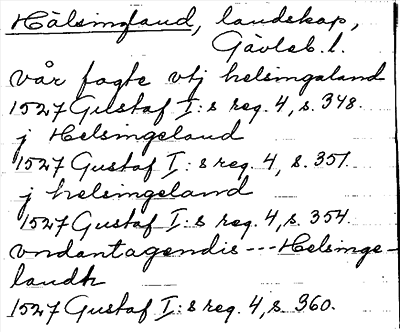 Hälsingland, landskap,
Gävleb. l.
vår fogte vtj helsingaland
1527 Gustaf I:s reg. 4, s. 348.
j Helsingeland
1527 Gustaf I:s reg. 4, s. 351
j helsingeland
1527 Gustaf I:s reg. 4, s. 354
vndantagendis --- Helsinge-
landh
1527 Gustaf I:s reg. 4, s. 360.